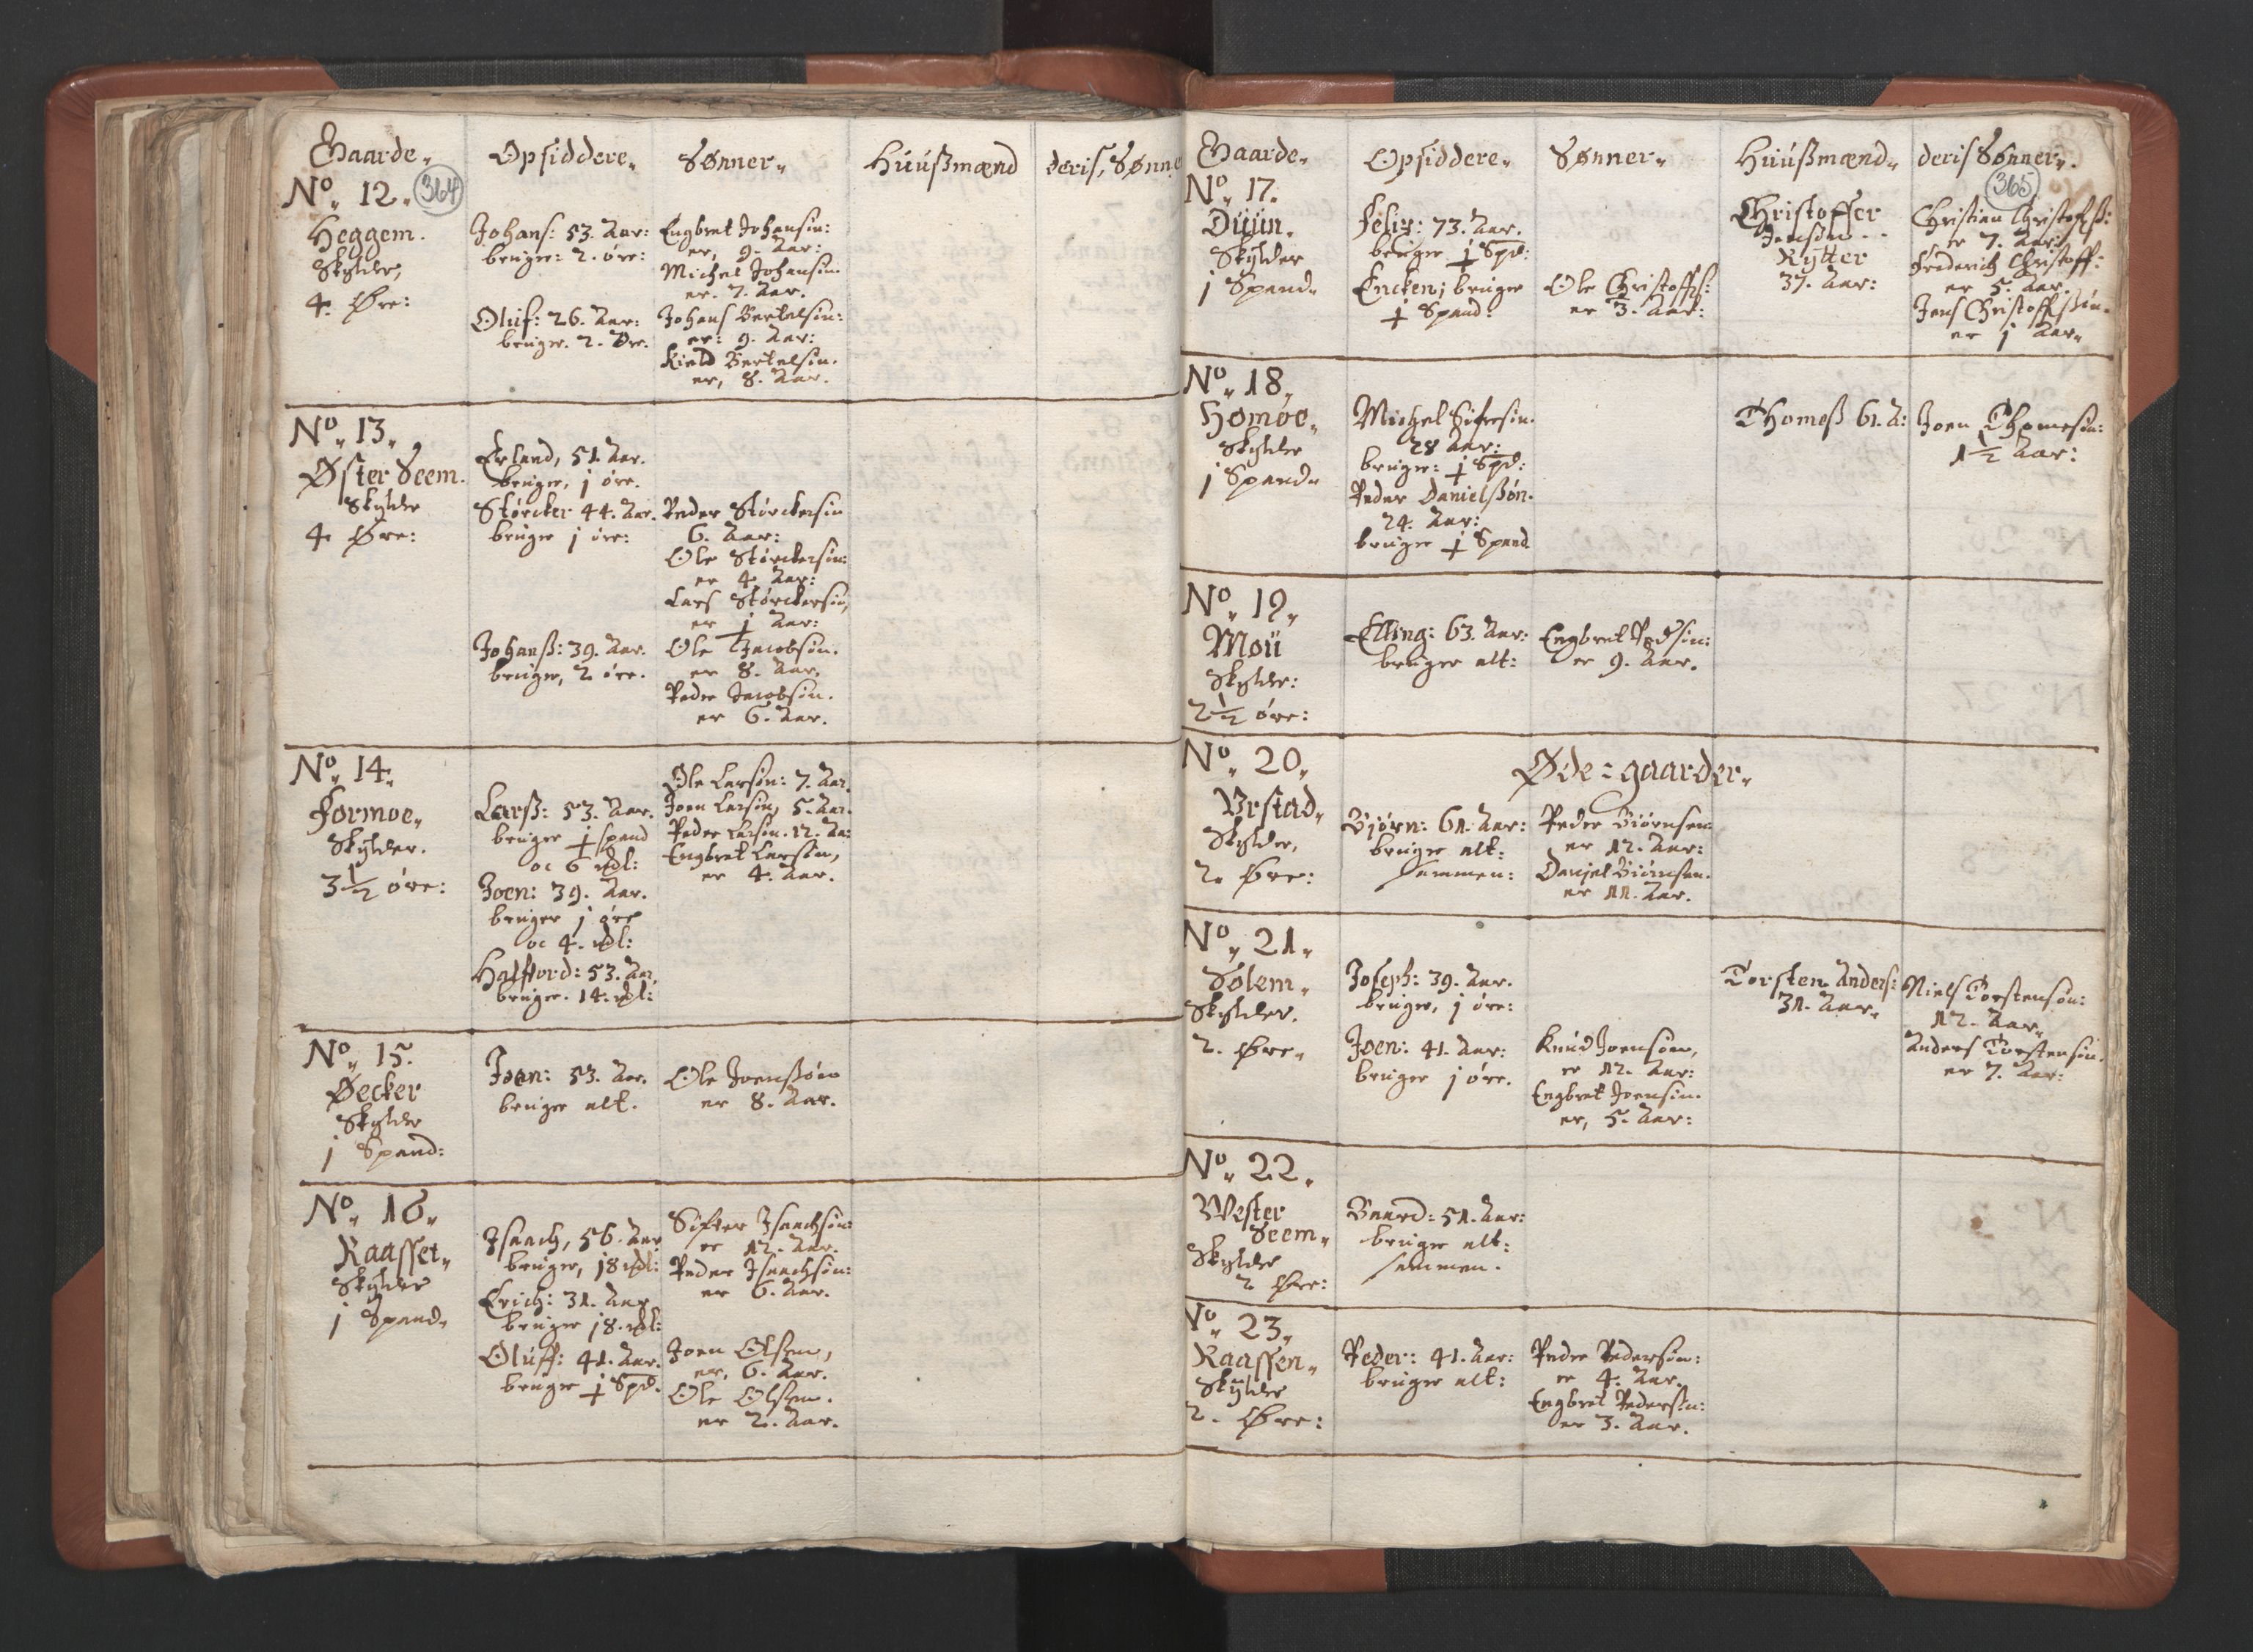 Gaarde„ Opsiddere„ Sønner„ Húúsmænd deris, Sønne
No„ 12. 364
Heggem.
Skylder,
4. Øre:
Johans: 53. Aar:
bruger: 2. øre:
Oluf: 26. Aar:
bruger. 2. Ør.
Engbret Johansøn:
er, 9. Aar:
Michel Johansøn.
er. 7. Aar.
Johans Bertelsøn:
er: 9. Aar:
Kield Bertelsøn.
er, 8. Aar.
No„ 13„
Øster Seem.
Skylder
4. Øre:
Erland, 51. Aar.
bruger, j øre.
Størcker 44. Aar.
bruger j øre:
Johanß: 39. Aar.
bruger, 2 øre.
Peder Størckersøn
6. Aar:
Ole Størckersøn:
er 4. Aar:
Lars Størckersøn,
er j Aar:
Ole Jacobsøn.
er 8. Aar.
Peder Jacobsøn.
er 6. Aar.
No„ 14„
Formoe„
Skylder.
3 1/2 øre:
Larß: 53. Aar.
bruger ½ spand
oc 6 mkl:
Joen: 39. Aar.
bruger j øre
oc 4. mkl:
Halfvord: 53. Aar,
bruger. 14. mkl:
Ole Larsøn: 7. Aar.
Joen Larsøn, 5. Aar.
Peder Larsøn. 12. Aa:
Engbret Larsøn,
er 4. Aar.
No„ 15.
Øecker
Skylder
j Spand:
Joen: 53. Aar.
bruger alt.
Ole Joenßøn
er 8. Aar.
No„ 16„
Raasset„
Skylder
j Spand„
Isaach, 56. Aar
bruger, 18 mkl:
Erich: 31. Aar
bruger 18. mkl:
Olúff: 41. Aar.
bruger ½ Spd.
Sifver Isaachsøn:
er 12. Aar.
Peder Isaachsøn:
er 6. Aar.
Joen Olsen,
er, 6. Aar.
Ole Olsen.
er 2. Aar.
Gaarde„ Opsiddere„ Sønner„ Húúsmænd„ deris Sønner„.
No„ 17. 365
Dúún.
Skylder
j Spand„
Felix: 73. Aar.
bruger ½ Spd:
Encken; bruger
½ Spand:
Ole Christoffs:
er 3. Aar:
Christoffer
Jensøn
Rÿtter
37. Aar:
Christian Christoffß:
er 7. Aar:
Frederich Christoff:
er 5. Aar.
Jens Christoffßøn.
er j Aar„
No„ 18„
Homoe„
Skylder
j Spand„
Michel Sifversøn.
28 Aar:
bruger: ½ Spd:
Peder Danielßøn.
24. Aar:
bruger ½ Spand
Thomeß 61. A:
Joen Thomesøn:
1 1/2 Aar:
No„ 19„
Moú
Skylder:
2 1/2 øre:
Elling: 63. Aar:
bruger alt:
Engbret Pedsøn:
er 9. Aar.
No„ 20„
Øde=gaarder„
Urstad„
Skylder,
2. Øre:
Bjørn: 61. Aar:
bruger alt:
sammen:
Peder Biørnsen:
er 12. Aar:
Danjel Biørnsen.
er 11. Aar.
No„ 21„
Solem„
Skylder.
2. Øre„
Joseph: 39. Aar.
bruger, j øre:
Joen: 41. Aar:
bruger j øre.
Knúd Joensøn,
er 12. Aar:
Engbret Joensøn.
er, 5. Aar:
Torsten Anders:
31. Aar„
Niels Torstensøn:
12. Aar„
Anders Torstensøn.
er 7. Aar:
No„ 22„
Wester
Seem„
Skylder
2 Øre:
Baard: 51. Aar:
bruger alt:
sammen.
No„ 23„
Raassen„
Skÿlder
2. Øre:
Peder: 41. Aar:
bruger alt:
Peder Pedersøn:
er 4. Aar.
Engbret Pedersøn:
er 3. Aar.